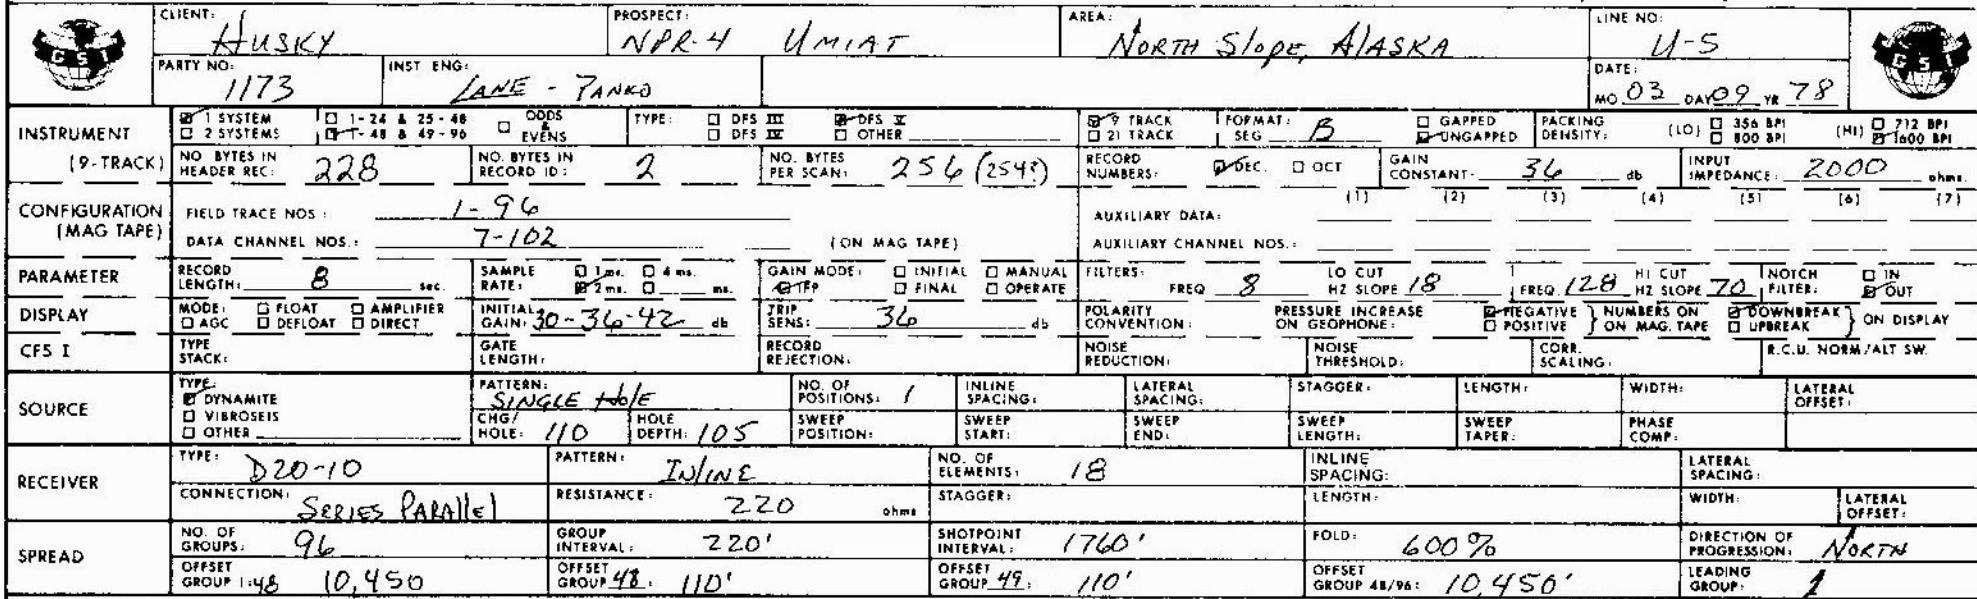 CLIENT: HUSKY PROSPECT: NPR-4 UMIAT AREA: NORTH Slope, AlASKA LINE NO: U-5
GSI GSI
PARTY NO: 1173 INST ENG: LANE - PANKO DATE: MO 03 DAY 09 YR 78
INSTRUMENT (9-TRACK)
1 SYSTEM 1-24 & 25-48 ODDS & EVENS TYPE: DFS III DFS V 9 TRACK FORMAT: SEG B GAPPED PACKING DENSITY: (LO) 356 BPI (HI) 712 BPI
2 SYSTEMS 1-48 & 49-96 DFS IV OTHER 21 TRACK UNGAPPED 800 BPI 1600 BPI
NO BYTES IN HEADER REC: 228 NO. BYTES IN RECORD ID: 2 NO. BYTES PER SCAN: 256 (254?) RECORD NUMBERS: DEC. OCT GAIN CONSTANT- 36 db INPUT IMPEDANCE: 2000 ohms.
CONFIGURATION (MAG TAPE)
FIELD TRACE NOS: 1-96 AUXILIARY DATA: (1) (2) (3) (4) (5) (6) (7)
DATA CHANNEL NOS.: 7-102 (ON MAG TAPE) AUXILIARY CHANNEL NOS.:
PARAMETER RECORD LENGTH: 8 sec. SAMPLE RATE: 1 ms. 4 ms. 2 ms. ms. GAIN MODE: INITIAL MANUAL IFP FINAL OPERATE FILTERS: FREQ 8 LO CUT HZ SLOPE 18 FREQ 128 HI CUT HZ SLOPE 70 NOTCH FILTER: IN OUT
DISPLAY MODE: FLOAT AMPLIFIER AGC DEFLOAT DIRECT INITIAL GAIN: 30-36-42 db TRIP SENS: 36 db POLARITY CONVENTION: PRESSURE INCREASE ON GEOPHONE: NEGATIVE POSITIVE } NUMBERS ON MAG. TAPE DOWNBREAK UPBREAK } ON DISPLAY
CFS I TYPE STACK: GATE LENGTH: RECORD REJECTION: NOISE REDUCTION: NOISE THRESHOLD: CORR. SCALING: R.C.U. NORM/ALT SW.
SOURCE
TYPE: DYNAMITE VIBROSEIS OTHER PATTERN: SINGLE HolE NO. OF POSITIONS: 1 INLINE SPACING: LATERAL SPACING: STAGGER: LENGTH: WIDTH: LATERAL OFFSET:
CHG/HOLE: 110 HOLE DEPTH: 105 SWEEP POSITION: SWEEP START: SWEEP END: SWEEP LENGTH: SWEEP TAPER: PHASE COMP:
RECEIVER
TYPE: D20-10 PATTERN: INlINE NO. OF ELEMENTS: 18 INLINE SPACING: LATERAL SPACING:
CONNECTION: SERIES PARAllEl RESISTANCE: 220 ohms STAGGER: LENGTH: WIDTH: LATERAL OFFSET:
SPREAD
NO. OF GROUPS: 96 GROUP INTERVAL: 220' SHOTPOINT INTERVAL: 1760' FOLD: 600% DIRECTION OF PROGRESSION: NORTH
OFFSET GROUP 1:48 10,450 OFFSET GROUP 48: 110' OFFSET GROUP 49: 110' OFFSET GROUP 48/96: 10,450' LEADING GROUP: 1